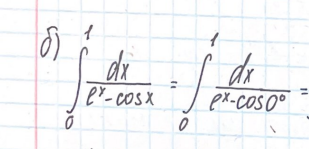 б) ∫₀¹ dx / (eˣ - cosx) = ∫₀¹ dx / (eˣ - cos0°) =